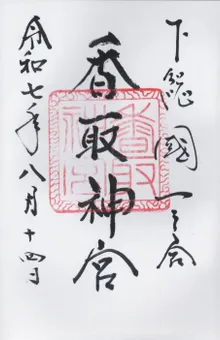 下総國一之宮
香取神宮
令和七年八月十四日
香取神宮